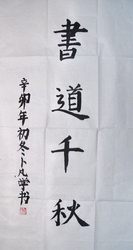 書道千秋
辛卯年初冬卜凡學書